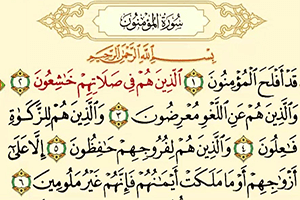 سُورَةُ الْمُؤْمِنُونَ
بِسْمِ اللَّهِ الرَّحْمَٰنِ الرَّحِيمِ
قَدْ أَفْلَحَ الْمُؤْمِنُونَ ١ الَّذِينَ هُمْ فِي صَلَاتِهِمْ خَاشِعُونَ ٢
وَالَّذِينَ هُمْ عَنِ اللَّغْوِ مُعْرِضُونَ ٣ وَالَّذِينَ هُمْ لِلزَّكَوٰةِ
فَاعِلُونَ ٤ وَالَّذِينَ هُمْ لِفُرُوجِهِمْ حَافِظُونَ ٥ إِلَّا عَلَىٰ
أَزْوَاجِهِمْ أَوْ مَا مَلَكَتْ أَيْمَانُهُمْ فَإِنَّهُمْ غَيْرُ مَلُومِينَ ٦